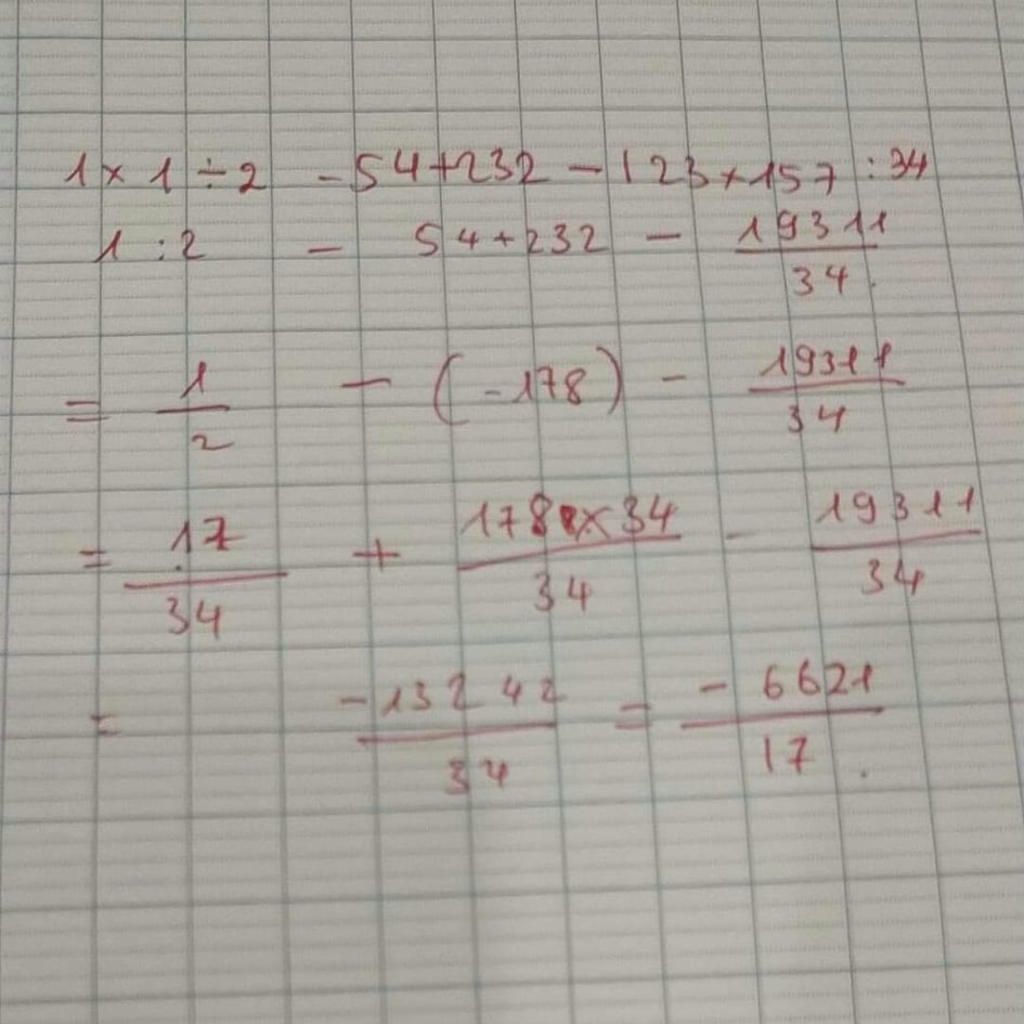 1 × 1 ÷ 2 - 54 + 232 - 123 × 157 : 34
1 : 2 - 54 + 232 - 19311/34
= 1/2 - (-178) - 19311/34
= 17/34 + 178 × 34/34 - 19311/34
= -13242/34 = -6621/17.